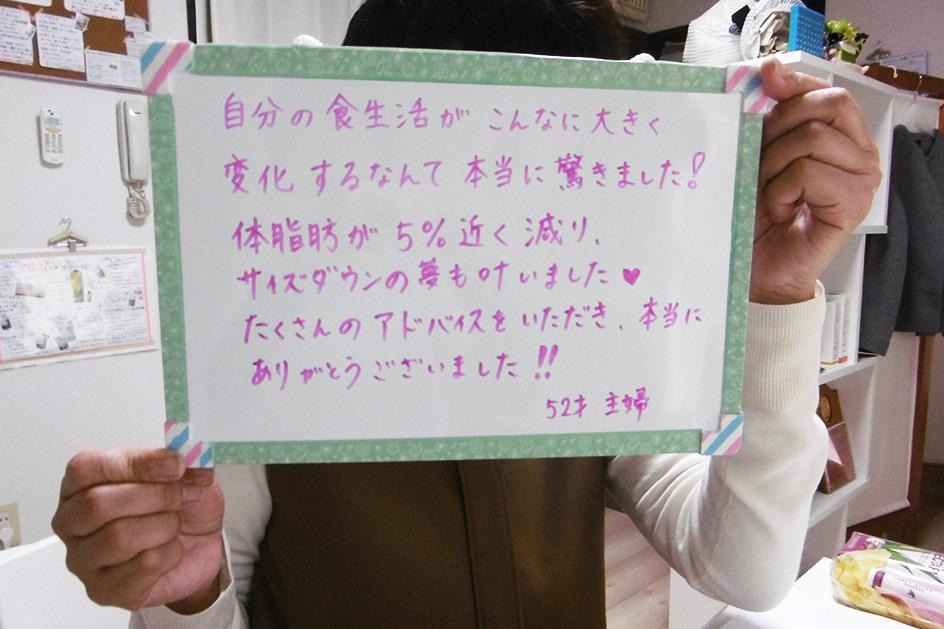 自分の食生活が こんなに大きく
変化するなんて 本当に驚きました!
体脂肪が 5%近く減り、
サイズダウンの夢も叶いました♥
たくさんのアドバイスをいただき、本当に
ありがとうございました!!
52才 主婦